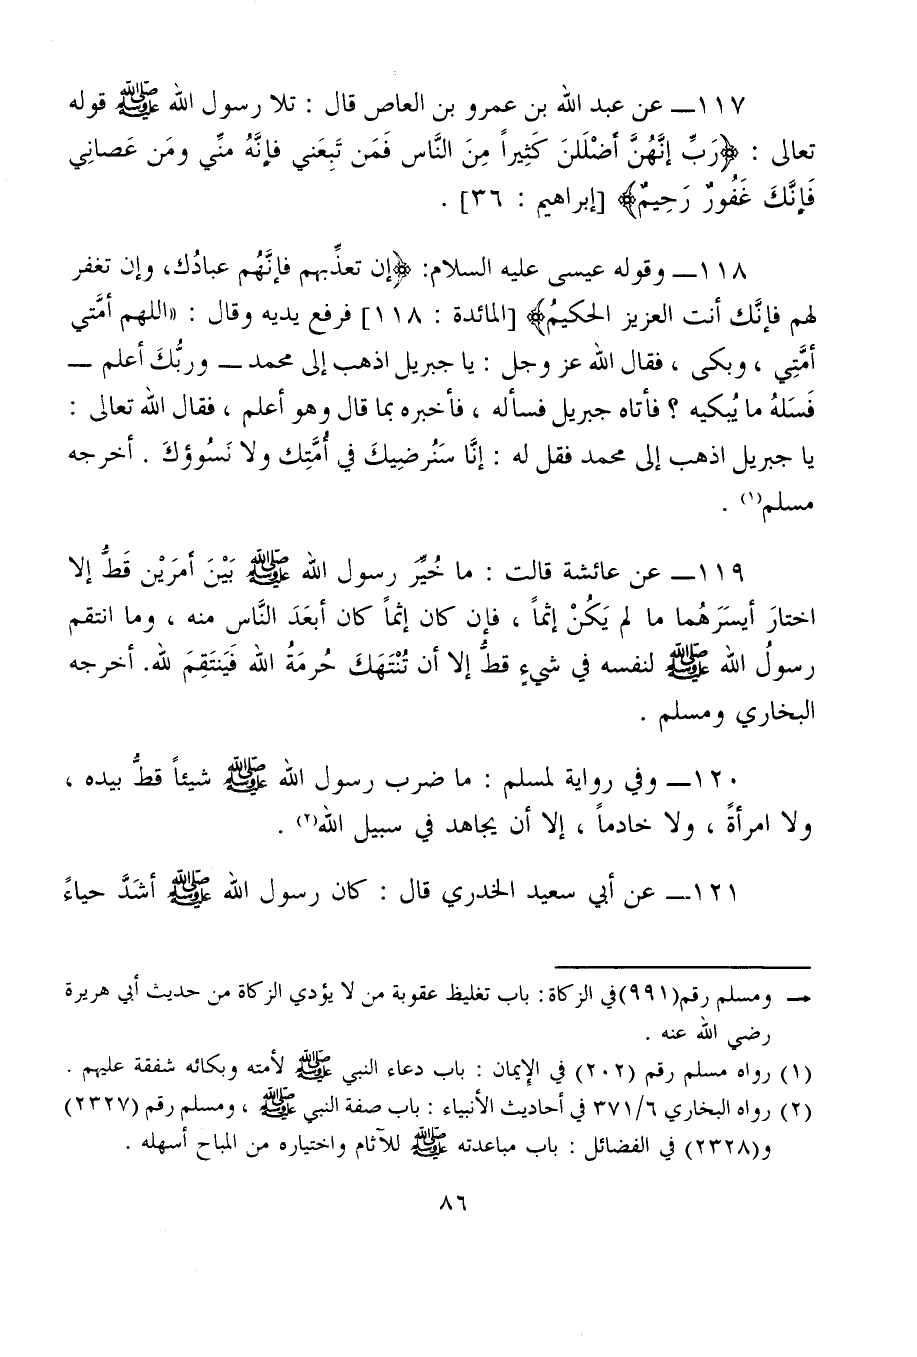 ١١٧ــ عن عبد الله بن عمرو بن العاص قال : تلا رسول الله ﷺ قوله
تعالى : ﴿رَبِّ إنَّهُنَّ أضْلَلنَ كَثِيراً مِنَ النَّاس فَمَن تَبِعَني فإنَّهُ منِّي ومَن عَصاني
فَإنَّكَ غَفُورٌ رَحِيمٌ﴾ [إبراهيم : ٣٦] .
١١٨ــ وقوله عيسى عليه السلام: ﴿إن تعذِّبهم فإنَّهُم عبادُك، وإن تغفر
لهم فإنَّك أنت العزيز الحكيمُ﴾ [المائدة : ١١٨] فرفع يديه وقال : «اللهم أمَّتي
أمَّتِي ، وبكى ، فقال الله عز وجل : يا جبريل اذهب إلى محمد ــ وربُّكَ أعلم ــ
فَسَلهُ ما يُبكيه ؟ فأتاه جبريل فسأله ، فأخبره بما قال وهو أعلم ، فقال الله تعالى :
يا جبريل اذهب إلى محمد فقل له : إنَّا سَنُرضِيكَ في أُمَّتِك ولا نَسُوؤكَ . أخرجه
مسلم(١) .
١١٩ــ عن عائشة قالت : ما خُيِّرَ رسول الله ﷺ بَيْنَ أمرَيْن قَطُّ إلا
اختارَ أيسَرَهُما ما لم يَكُنْ إثماً ، فإن كان إثماً كان أبعَدَ النَّاس منه ، وما انتقم
رسولُ الله ﷺ لنفسه في شيءٍ قطُّ إلا أن تُنْتَهَكَ حُرمَةُ الله فَيَنتَقِمَ لله. أخرجه
البخاري ومسلم .
١٢٠ــ وفي رواية لمسلم : ما ضرب رسول الله ﷺ شيئاً قطُّ بيده ،
ولا امرأةً ، ولا خادماً ، إلا أن يجاهد في سبيل الله(٢) .
١٢١ــ عن أبي سعيد الخدري قال : كان رسول الله ﷺ أشَدَّ حياءً
→ ومسلم رقم(٩٩١)في الزكاة : باب تغليظ عقوبة من لا يؤدي الزكاة من حديث أبي هريرة
رضي الله عنه .
(١) رواه مسلم رقم (٢٠٢) في الإيمان : باب دعاء النبي ﷺ لأمته وبكائه شفقة عليهم .
(٢) رواه البخاري ٣٧١/٦ في أحاديث الأنبياء : باب صفة النبي ﷺ ، ومسلم رقم (٢٣٢٧)
و(٢٣٢٨) في الفضائل : باب مباعدته ﷺ للآثام واختياره من المباح أسهله .
٨٦